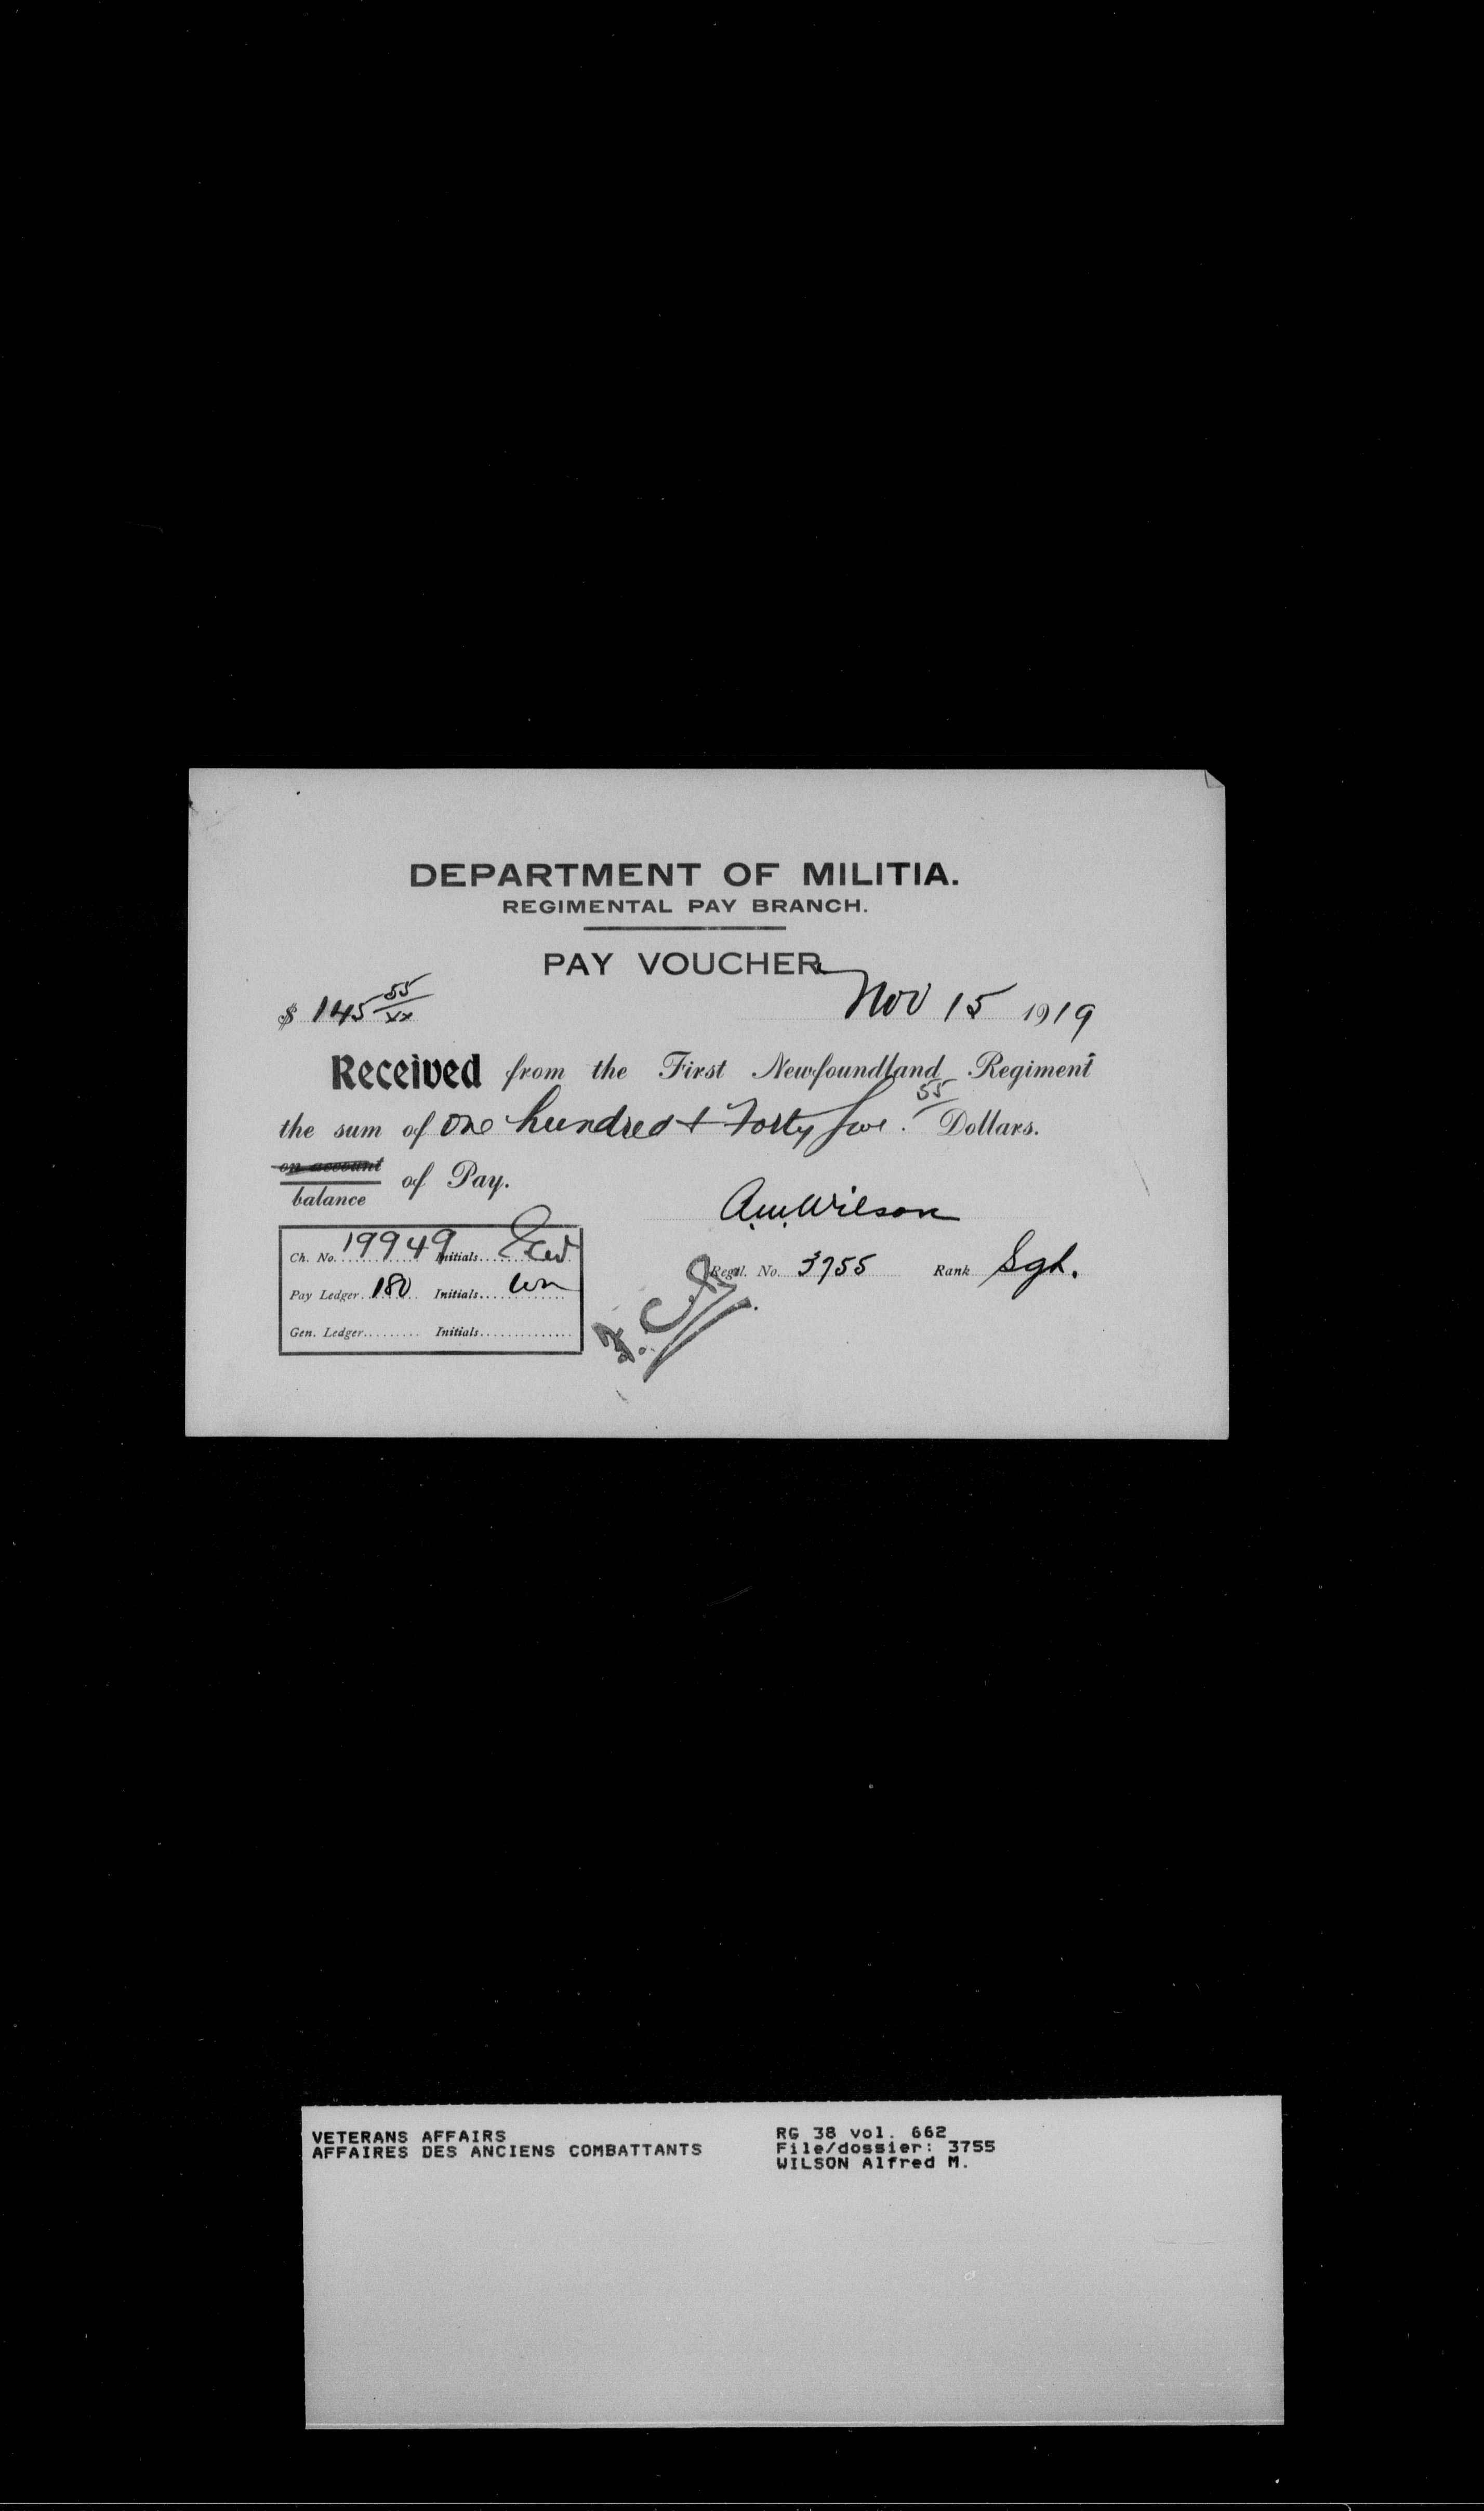 DEPARTMENT OF MILITIA.
REGIMENTAL PAY BRANCH.
PAY VOUCHER
$ 145 55/xx Nov 15 1919
Received from the First Newfoundland Regiment
the sum of one hundred + Forty five . 55/ Dollars.
on account
balance of Pay.
A.M. Wilson
Ch. No. 19949 Initials
Regtl. No. 3755 Rank Sgt.
Pay Ledger. 180 Initials
Gen. Ledger Initials
VETERANS AFFAIRS
AFFAIRES DES ANCIENS COMBATTANTS
RG 38 vol. 662
File/dossier: 3755
WILSON Alfred M.